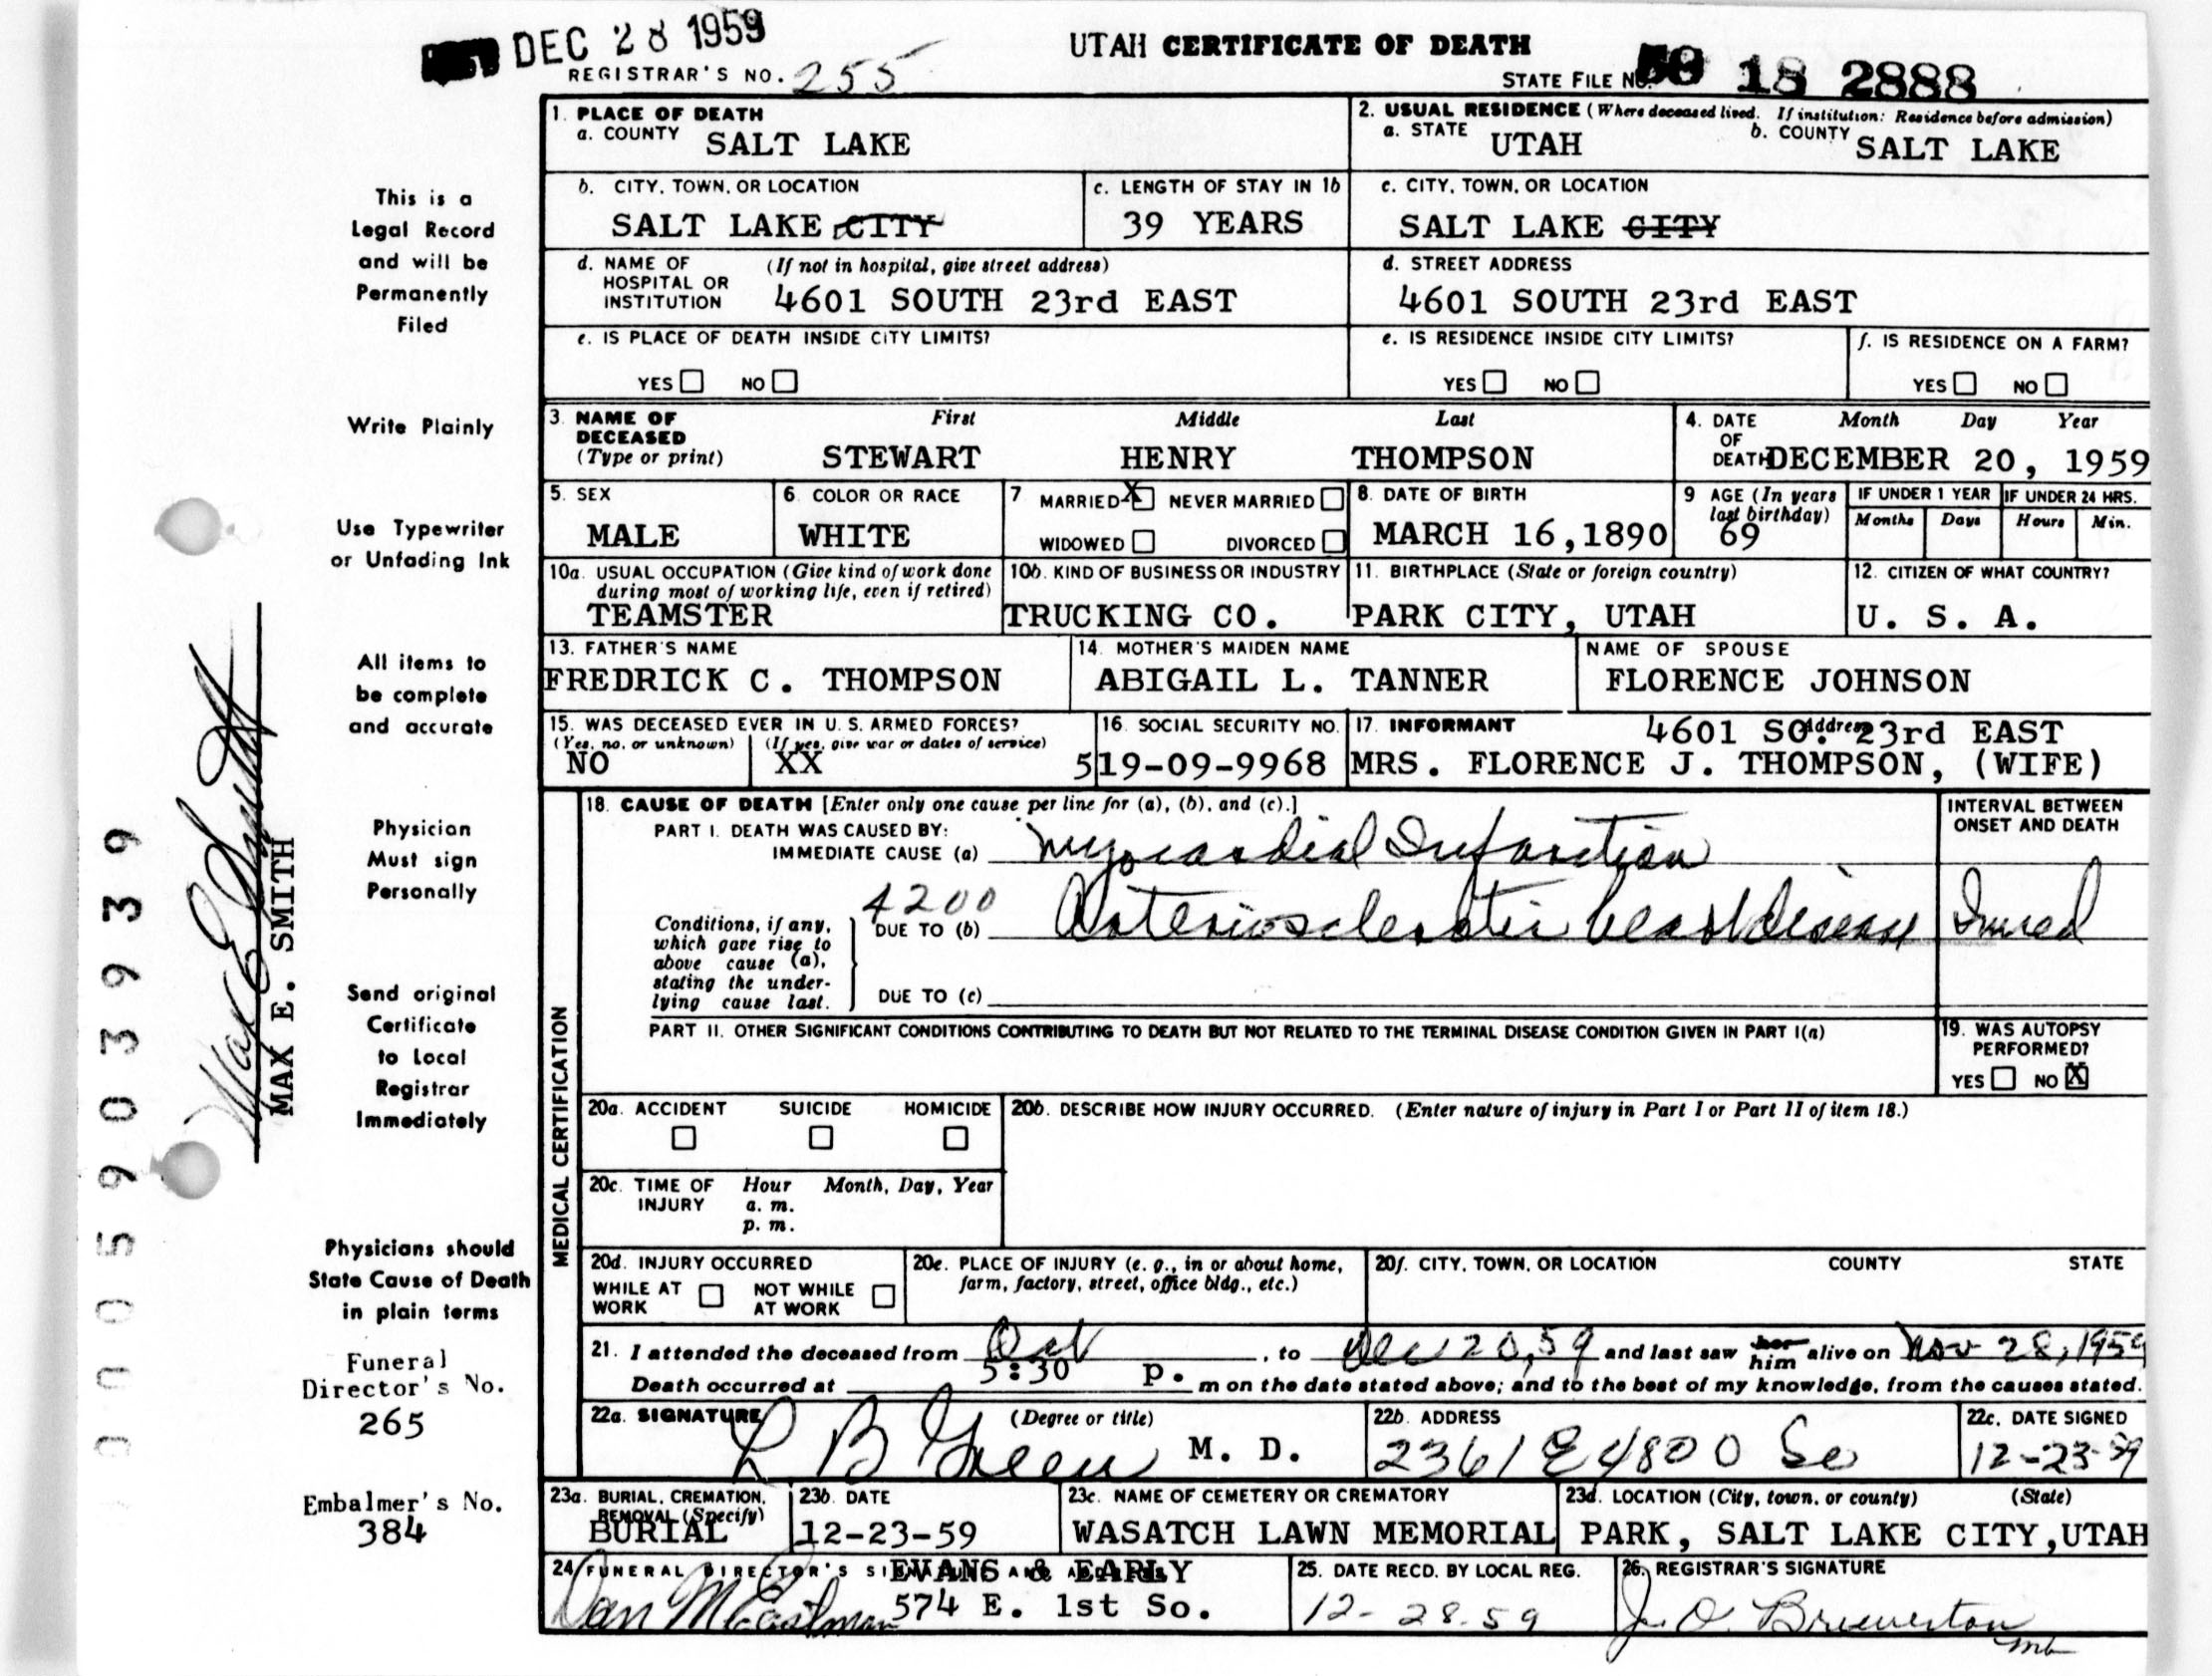 DEC 28 1959
UTAH CERTIFICATE OF DEATH
REGISTRAR'S NO. 255
STATE FILE NO. 18 2888
1. PLACE OF DEATH
a. COUNTY SALT LAKE
2. USUAL RESIDENCE (Where deceased lived. If institution: Residence before admission)
a. STATE UTAH b. COUNTY SALT LAKE
b. CITY, TOWN, OR LOCATION
SALT LAKE CITY
c. LENGTH OF STAY IN 1b
39 YEARS
c. CITY, TOWN, OR LOCATION
SALT LAKE CITY
d. NAME OF HOSPITAL OR INSTITUTION (If not in hospital, give street address)
4601 SOUTH 23rd EAST
d. STREET ADDRESS
4601 SOUTH 23rd EAST
e. IS PLACE OF DEATH INSIDE CITY LIMITS?
YES NO
e. IS RESIDENCE INSIDE CITY LIMITS?
YES NO
f. IS RESIDENCE ON A FARM?
YES NO
3. NAME OF DECEASED (Type or print)
First Middle Last
STEWART HENRY THOMPSON
4. DATE OF DEATH Month Day Year
DECEMBER 20, 1959
5. SEX
MALE
6. COLOR OR RACE
WHITE
7 MARRIED X NEVER MARRIED
WIDOWED DIVORCED
8. DATE OF BIRTH
MARCH 16,1890
9 AGE (In years last birthday)
69
IF UNDER 1 YEAR
Months Days
IF UNDER 24 HRS.
Hours Min.
10a. USUAL OCCUPATION (Give kind of work done during most of working life, even if retired)
TEAMSTER
10b. KIND OF BUSINESS OR INDUSTRY
TRUCKING CO.
11. BIRTHPLACE (State or foreign country)
PARK CITY, UTAH
12. CITIZEN OF WHAT COUNTRY?
U. S. A.
13. FATHER'S NAME
FREDRICK C. THOMPSON
14. MOTHER'S MAIDEN NAME
ABIGAIL L. TANNER
NAME OF SPOUSE
FLORENCE JOHNSON
15. WAS DECEASED EVER IN U.S. ARMED FORCES?
(Yes, no, or unknown) (If yes, give war or dates of service)
NO XX
16. SOCIAL SECURITY NO.
519-09-9968
17. INFORMANT Address
4601 SO. 23rd EAST
MRS. FLORENCE J. THOMPSON, (WIFE)
MEDICAL CERTIFICATION
18. CAUSE OF DEATH [Enter only one cause per line for (a), (b), and (c).]
PART I. DEATH WAS CAUSED BY:
IMMEDIATE CAUSE (a) Myocardial Infarction
INTERVAL BETWEEN ONSET AND DEATH
4200
Conditions, if any, which gave rise to above cause (a), stating the underlying cause last.
DUE TO (b) Arteriosclerotic heart disease
DUE TO (c)
PART II. OTHER SIGNIFICANT CONDITIONS CONTRIBUTING TO DEATH BUT NOT RELATED TO THE TERMINAL DISEASE CONDITION GIVEN IN PART I(a)
19. WAS AUTOPSY PERFORMED?
YES NO X
20a. ACCIDENT SUICIDE HOMICIDE
20b. DESCRIBE HOW INJURY OCCURRED. (Enter nature of injury in Part I or Part II of item 18.)
20c. TIME OF INJURY Hour Month, Day, Year
a. m.
p. m.
20d. INJURY OCCURRED
WHILE AT WORK NOT WHILE AT WORK
20e. PLACE OF INJURY (e. g., in or about home, farm, factory, street, office bldg., etc.)
20f. CITY, TOWN, OR LOCATION COUNTY STATE
21. I attended the deceased from Oct, to Dec 20,59 and last saw her him alive on Nov 28, 1959
Death occurred at 5:30 p. m on the date stated above; and to the best of my knowledge, from the causes stated.
22a. SIGNATURE (Degree or title)
L B Green M. D.
22b. ADDRESS
2361 E 4800 So
22c. DATE SIGNED
12-23-59
23a. BURIAL, CREMATION, REMOVAL (Specify)
BURIAL
23b. DATE
12-23-59
23c. NAME OF CEMETERY OR CREMATORY
WASATCH LAWN MEMORIAL
23d. LOCATION (City, town, or county) (State)
PARK, SALT LAKE CITY,UTAH
24 FUNERAL DIRECTOR'S
EVANS & EARLY
Dan M Eastman 574 E. 1st So.
25. DATE RECD. BY LOCAL REG.
12-28-59
26. REGISTRAR'S SIGNATURE
J. O. Brewerton
mb
This is a
Legal Record
and will be
Permanently
Filed
Write Plainly
Use Typewriter
or Unfading Ink
All items to
be complete
and accurate
Physician
Must sign
Personally
Send original
Certificate
to Local
Registrar
Immediately
Physicians should
State Cause of Death
in plain terms
Funeral
Director's No.
265
Embalmer's No.
384
Max E Smith
MAX E. SMITH
0005903939